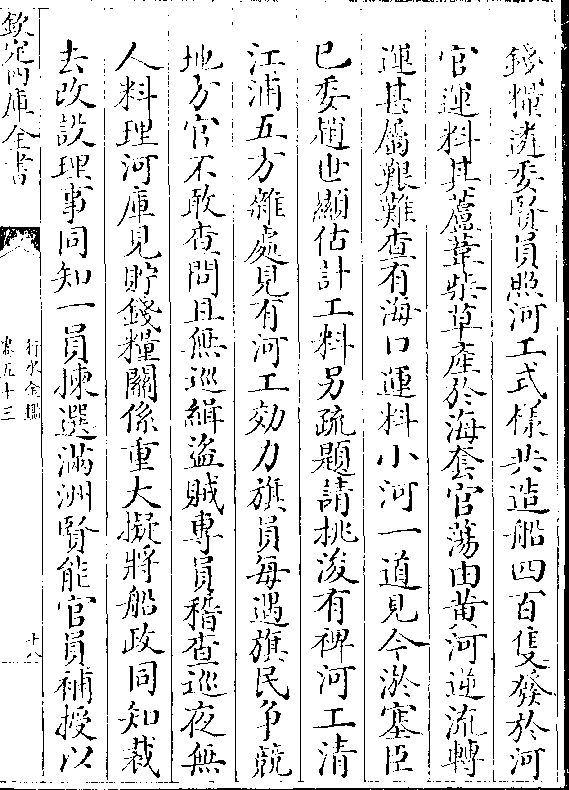 錢糧遴委賢員照河工式樣共造船四百隻發於河
官運料其蘆葦柴草產於海套官蕩由黃河逆流轉
運甚屬艱難查有海口運料小河一道見今淤塞臣
已委趙世顯估計工料另疏題請挑浚有裨河工清
江浦五方雜處見有河工効力旗員每遇旗民爭競
地方官不敢查問且無巡緝盜賊專員稽查巡夜無
人料理河庫見貯錢糧關係重大擬將船政同知裁
去改設理事同知一員揀選滿洲賢能官員補授以
欽定四庫全書
行水金鑑
卷五十三
十八